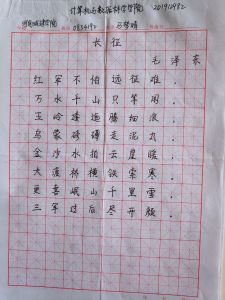 计算机与数据科学学院 201910982
0834192
长征
毛泽东
红军不怕远征难，
万水千山只等闲。
五岭逶迤腾细浪，
乌蒙磅礴走泥丸。
金沙水拍云崖暖，
大渡桥横铁索寒。
更喜岷山千里雪，
三军过后尽开颜。